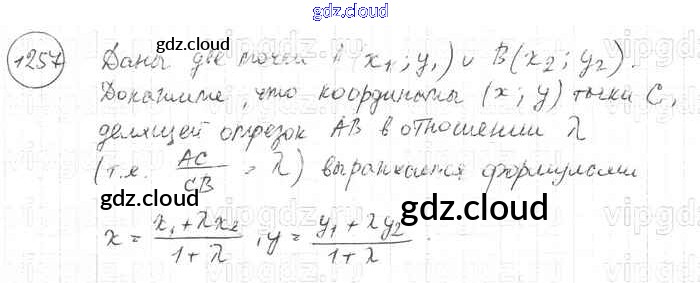 gdz.cloud
gdz.cloud
1257 Даны две точки A(x₁; y₁) и B(x₂; y₂).
Докажите, что координаты (x; y) точки C,
gdz.cloud
делящей отрезок AB в отношении λ
(т.е. AC/CB = λ) выражаются формулами
gdz.cloud
gdz.cloud
x = (x₁ + λx₂)/(1 + λ), y = (y₁ + λy₂)/(1 + λ).
gdz.cloud